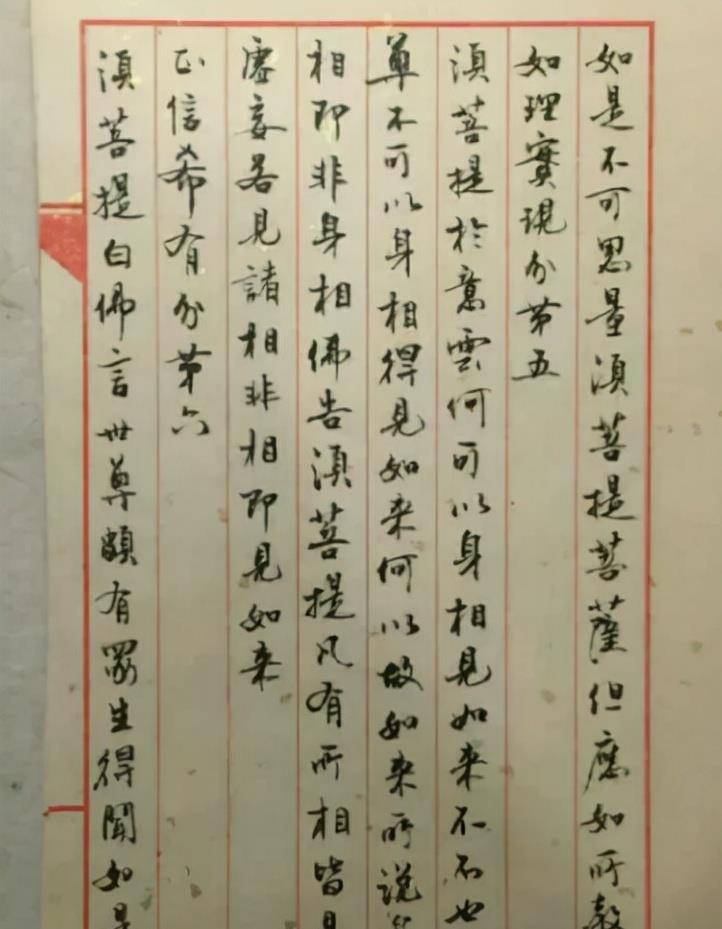 如是不可思量須菩提菩薩但應如所教
如理實現分第五
須菩提於意雲何可以身相見如来不不也
尊不可以身相得見如来何以故如来所說
相即非身相佛告須菩提凡有所相皆是
虛妄若見諸相非相即見如来
正信希有分第六
須菩提白佛言世尊頗有眾生得聞如是